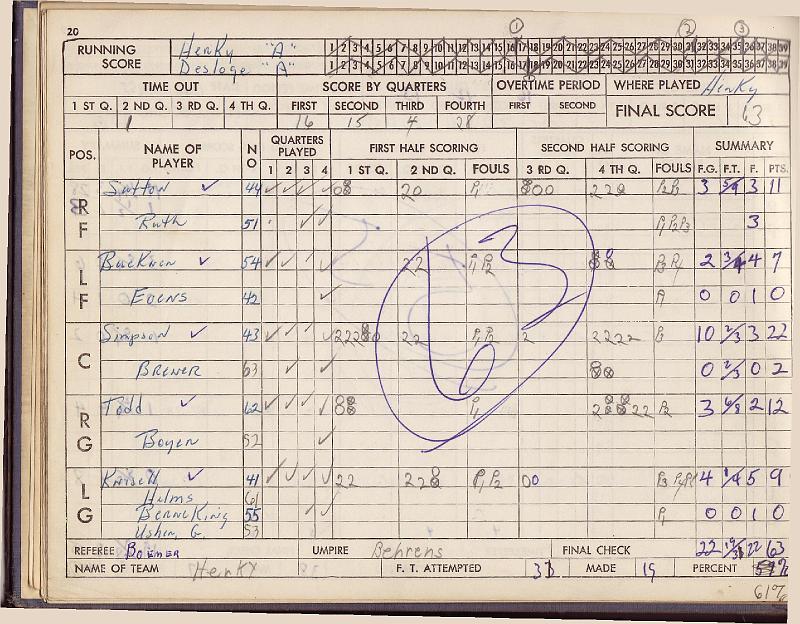 20
RUNNING SCORE Henky "A" 1 2 3 4 5 6 7 8 9 10 11 12 13 14 15 16 17 18 19 20 21 22 23 24 25 26 27 28 29 30 31 32 33 34 35 36 37 38 39
Desloge "A" 1 2 3 4 5 6 7 8 9 10 11 12 13 14 15 16 17 18 19 20 21 22 23 24 25 26 27 28 29 30 31 32 33 34 35 36 37 38 39
TIME OUT SCORE BY QUARTERS OVERTIME PERIOD WHERE PLAYED Henky
1 ST Q. 2 ND Q. 3 RD Q. 4 TH Q. FIRST SECOND THIRD FOURTH FIRST SECOND FINAL SCORE 63
1 16 15 4 28
POS. NAME OF PLAYER NO QUARTERS PLAYED FIRST HALF SCORING SECOND HALF SCORING SUMMARY
1 2 3 4 1 ST Q. 2 ND Q. FOULS 3 RD Q. 4 TH Q. FOULS F.G. F.T. F. PTS.
RF Sutton 44 20 P1 3 3 11
Ruth 51 P1 P2 P3 3
LF 54 22 P1 P2 2 4 7
Evens 42 0 0 1 0
C Simpson 43 22 P1 P2 2 2222 10 2/3 3 22
Brewer 63 0 2/3 0 2
RG Todd 62 P1 P2 3 6/8 2 12
Boyen 52
LG 41 22 P1 P2 00 4 1/4 5 9
Helms 61
Berne King 55 P1 0 0 1 0
Usher, G. 53
63
REFEREE Boemer UMPIRE Behrens FINAL CHECK 22 19/31 22 63
NAME OF TEAM Henky F. T. ATTEMPTED 31 MADE 19 PERCENT
61%